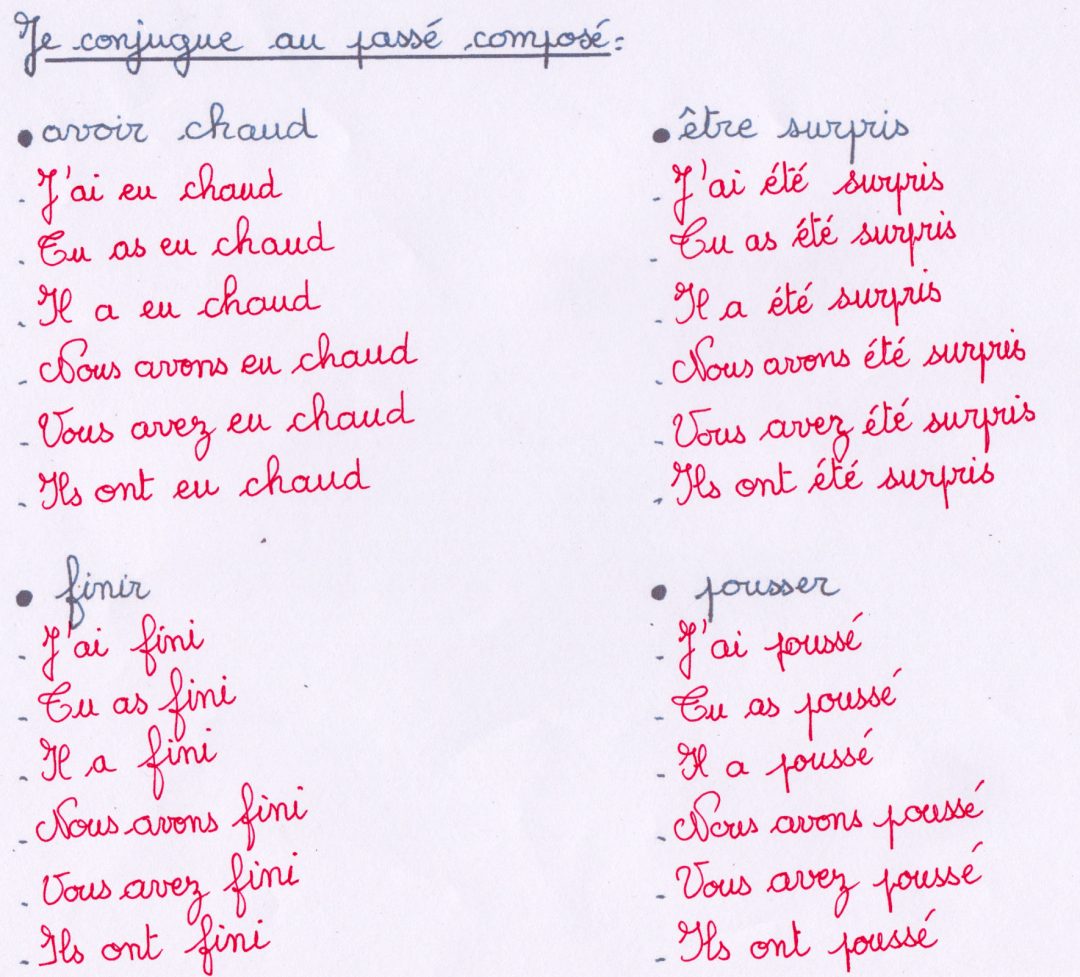 Je conjugue au passé composé:
• avoir chaud
- J'ai eu chaud
- Tu as eu chaud
- Il a eu chaud
- Nous avons eu chaud
- Vous avez eu chaud
- Ils ont eu chaud
• être surpris
- J'ai été surpris
- Tu as été surpris
- Il a été surpris
- Nous avons été surpris
- Vous avez été surpris
- Ils ont été surpris
• finir
- J'ai fini
- Tu as fini
- Il a fini
- Nous avons fini
- Vous avez fini
- Ils ont fini
• pousser
- J'ai poussé
- Tu as poussé
- Il a poussé
- Nous avons poussé
- Vous avez poussé
- Ils ont poussé